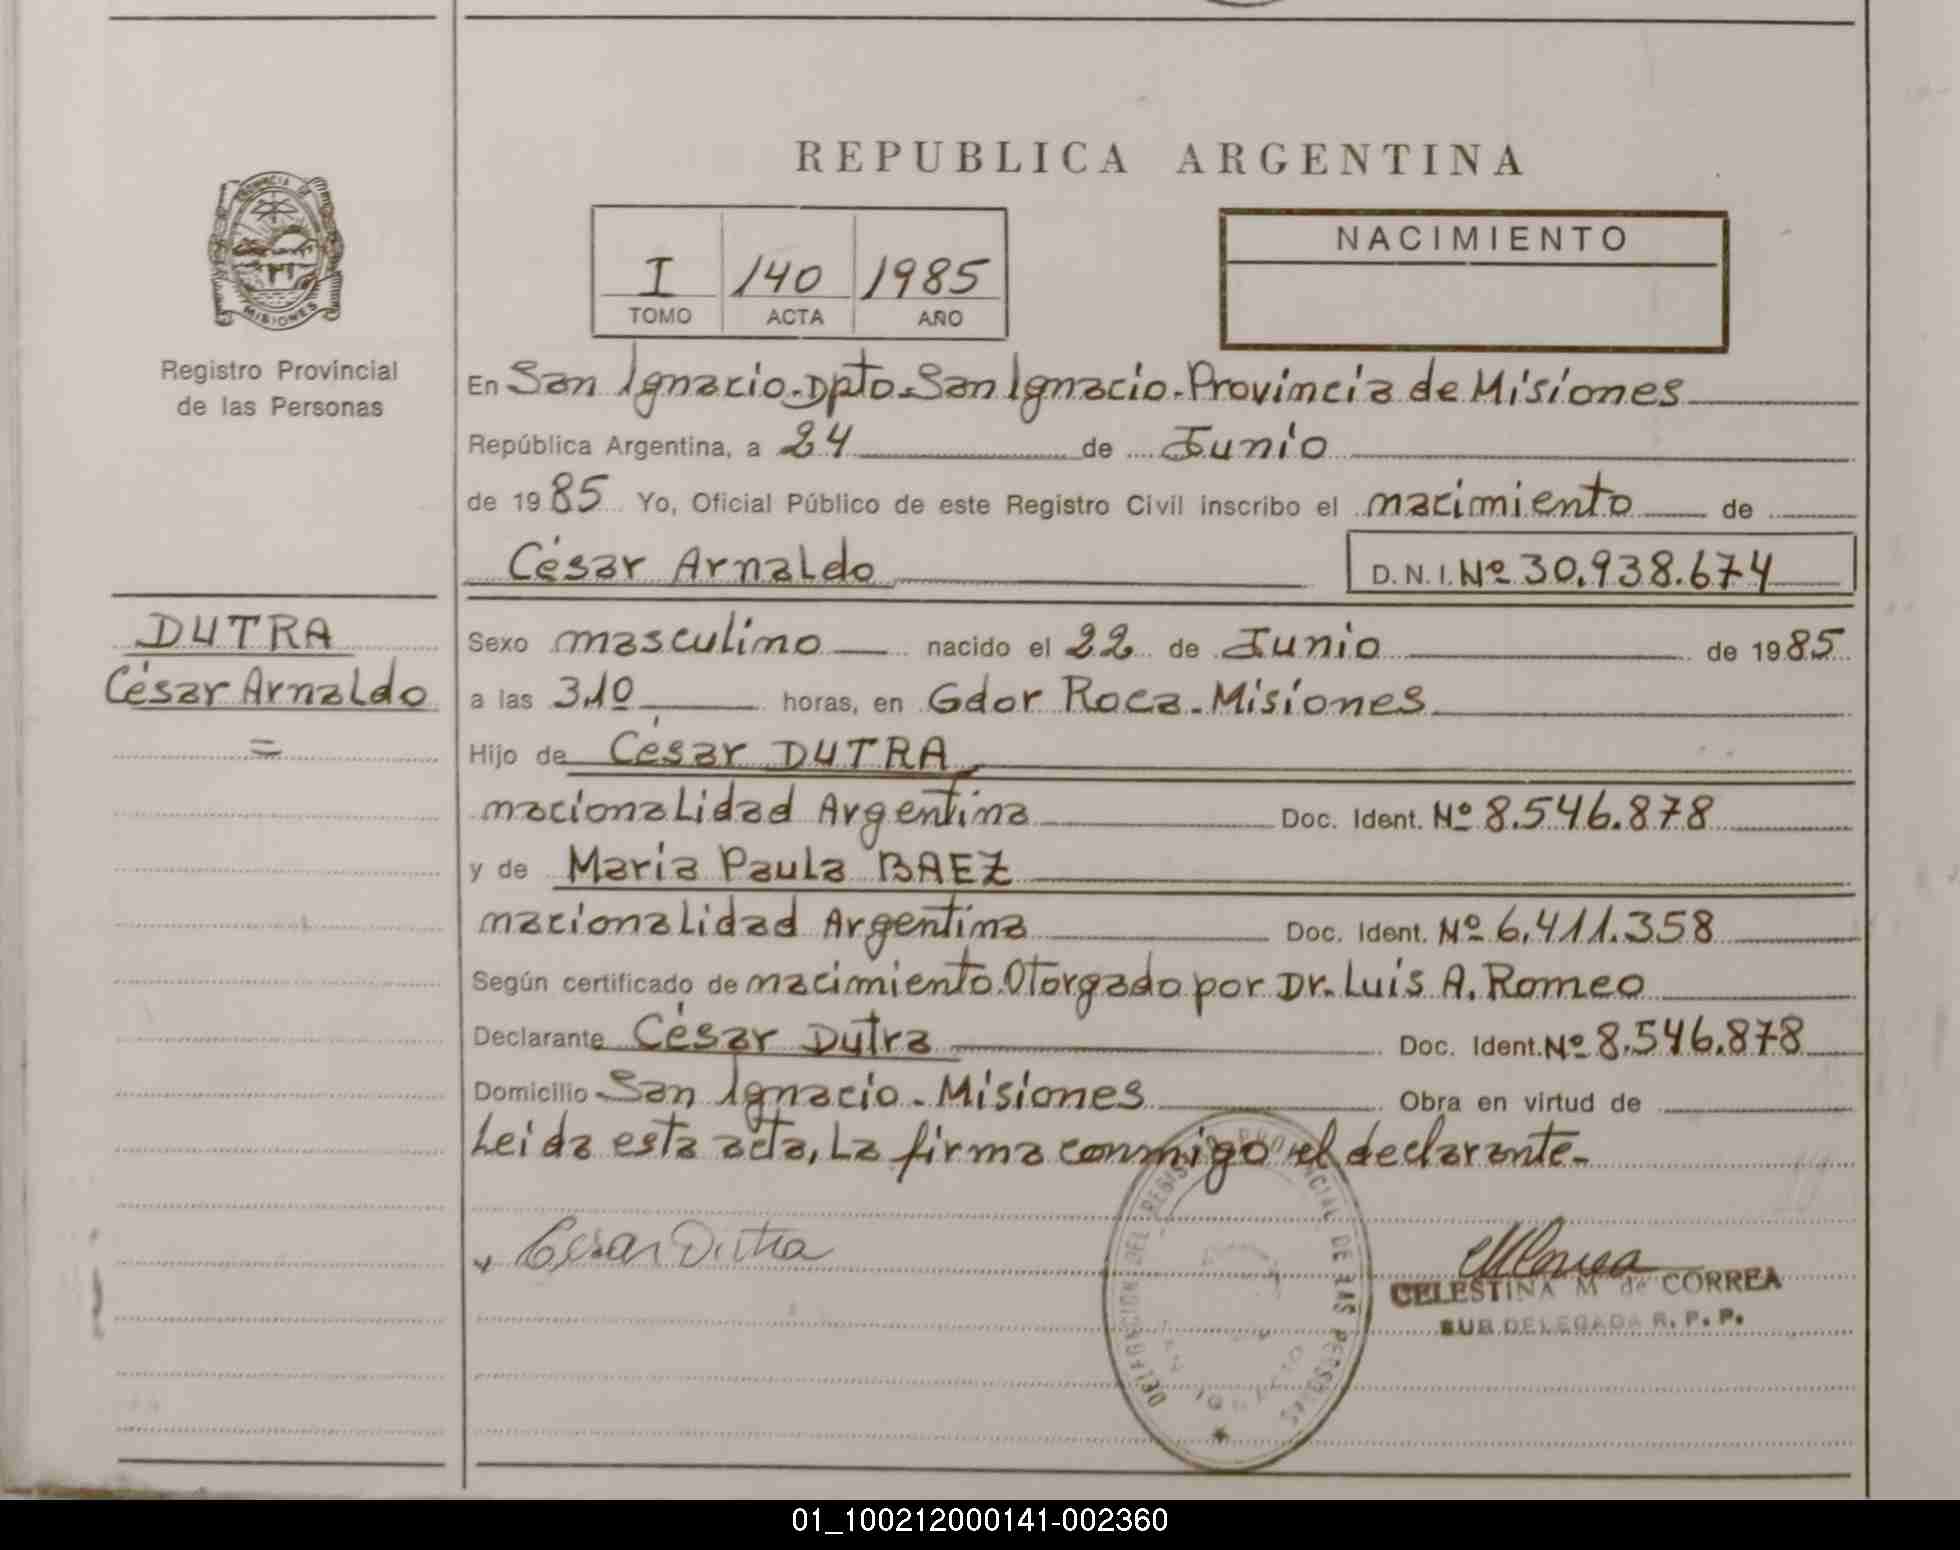 REPUBLICA ARGENTINA
PROVINCIA DE
MISIONES
Registro Provincial
de las Personas
I 140 1985
TOMO ACTA AÑO
NACIMIENTO
En San Ignacio. Dpto. San Ignacio. Provincia de Misiones
República Argentina, a 24 de Junio
de 1985 Yo, Oficial Público de este Registro Civil inscribo el nacimiento de
César Arnaldo D.N.I. Nº 30.938.674
DUTRA
César Arnaldo
=
Sexo masculino nacido el 22 de Junio de 1985
a las 3,10 horas, en Gdor Roca. Misiones
Hijo de César DUTRA
nacionalidad Argentina Doc. Ident. Nº 8.546.878
y de María Paula BAEZ
nacionalidad Argentina Doc. Ident. Nº 6.411.358
Según certificado de nacimiento Otorgado por Dr. Luis A. Romeo
Declarante César Dutra Doc. Ident. Nº 8.546.878
Domicilio San Ignacio. Misiones Obra en virtud de
Leída esta acta, La firma conmigo el declarante-
Cesar Dutra
DELEGACION DEL REGISTRO PROVINCIAL DE LAS PERSONAS
SAN IGNACIO
CELESTINA M de CORREA
SUB DELEGADA R. P. P.
01_100212000141-002360